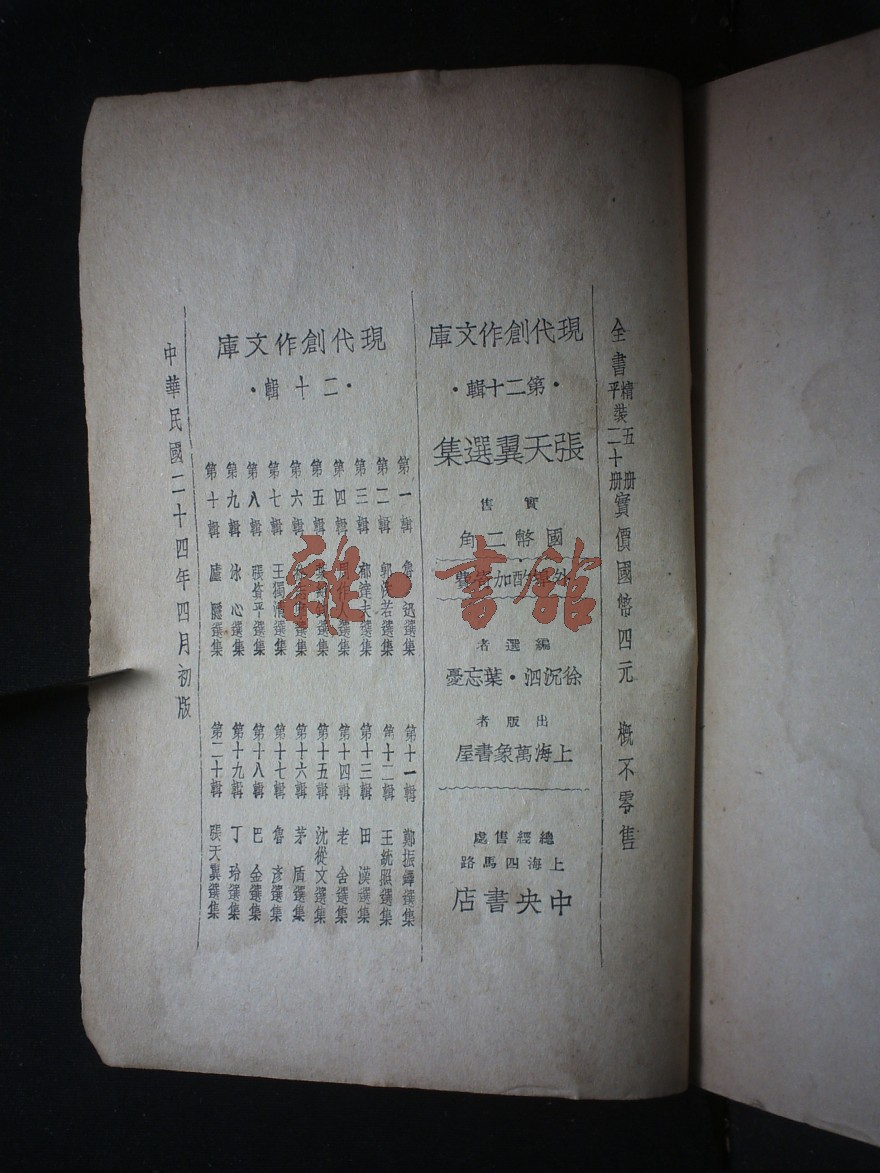 全書精裝五冊平裝二十冊實價國幣四元　概不零售
現代創作文庫
·第二十輯·
張天翼選集
實售
國幣二角
外埠酌加寄費
編選者
徐沉泗·葉忘憂
出版者
上海萬象書屋
總經售處
上海四馬路
中央書店
現代創作文庫
·二十輯·
第一輯 魯迅選集
第二輯 郭沫若選集
第三輯 郁達夫選集
第四輯 周作人選集
第五輯 選集
第六輯 選集
第七輯 王獨清選集
第八輯 張資平選集
第九輯 冰心選集
第十輯 廬隱選集
第十一輯 鄭振鐸選集
第十二輯 王統照選集
第十三輯 田漢選集
第十四輯 老舍選集
第十五輯 沈從文選集
第十六輯 茅盾選集
第十七輯 魯彥選集
第十八輯 巴金選集
第十九輯 丁玲選集
第二十輯 張天翼選集
中華民國二十四年四月初版
雜·書館